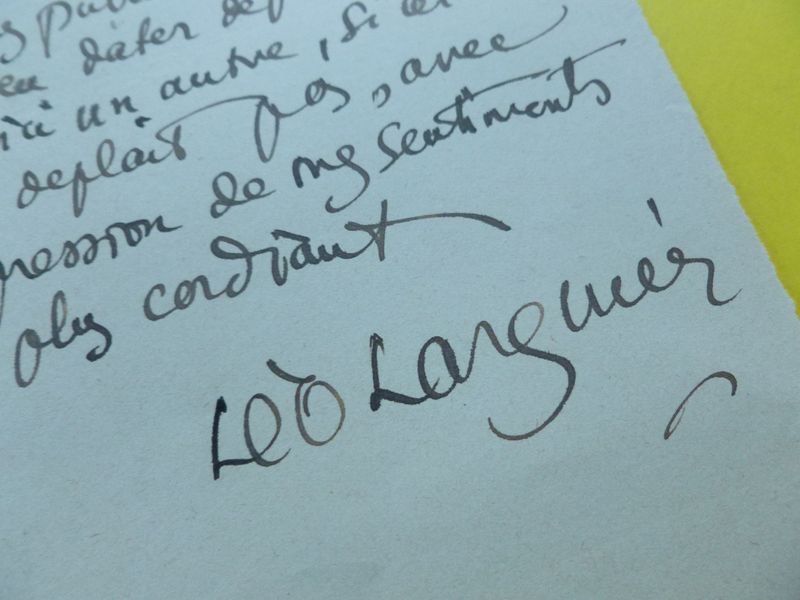 en dater de
ici un autre, si ce
deplait pas, avec
pression de mes sentiments
plus cordiaux
Léo Larguier